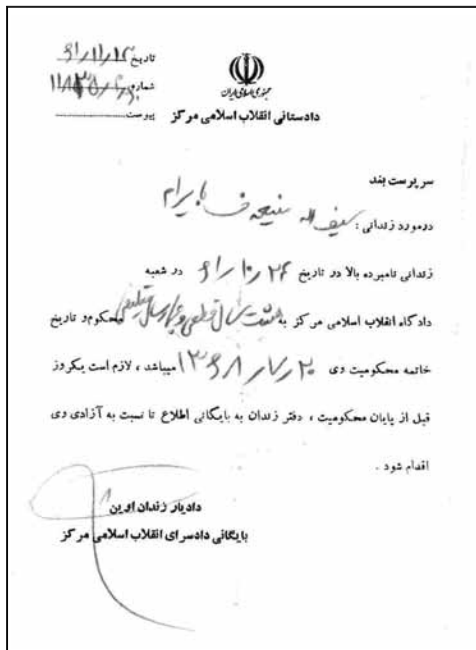 تاریخ ۶۱/۱۱/۱۲
شماره
پیوست
جمهوری اسلامی ایران
دادستانی انقلاب اسلامی مرکز
سرپرست بند
درمورد زندانی : سیف اله منیعه
زندانی نامبرده بالا در تاریخ ۶۱/۱۰/۲۴ در شعبه
دادگاه انقلاب اسلامی مرکز به هشت سال قطعی و چهار سال تعلیقی محکوم و تاریخ
خاتمه محکومیت وی ۱۳۶۸/۷/۲۰ میباشد ، لازم است یکروز
قبل از پایان محکومیت ، دفتر زندان به بایگانی اطلاع تا نسبت به آزادی وی
اقدام شود .
دادیار زندان اوین
بایگانی دادسرای انقلاب اسلامی مرکز